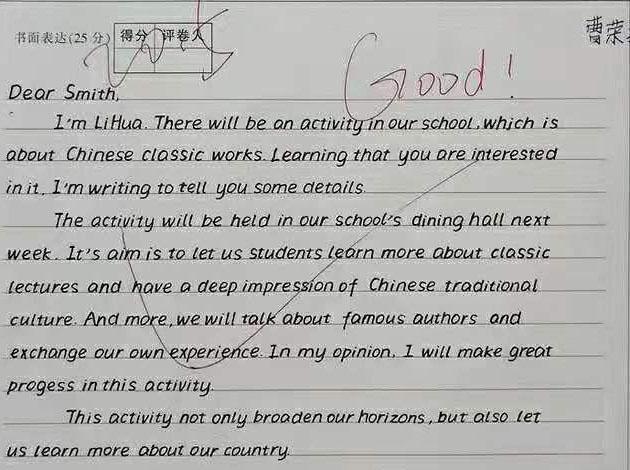 书面表达(25分) 得分 评卷人
曹荣
Good!
Dear Smith,
I'm LiHua. There will be an activity in our school, which is
about Chinese classic works. Learning that you are interested
in it, I'm writing to tell you some details.
The activity will be held in our school's dining hall next
week. It's aim is to let us students learn more about classic
lectures and have a deep impression of Chinese traditional
culture. And more, we will talk about famous authors and
exchange our own experience. In my opinion, I will make great
progess in this activity.
This activity not only broaden our horizons, but also let
us learn more about our country.